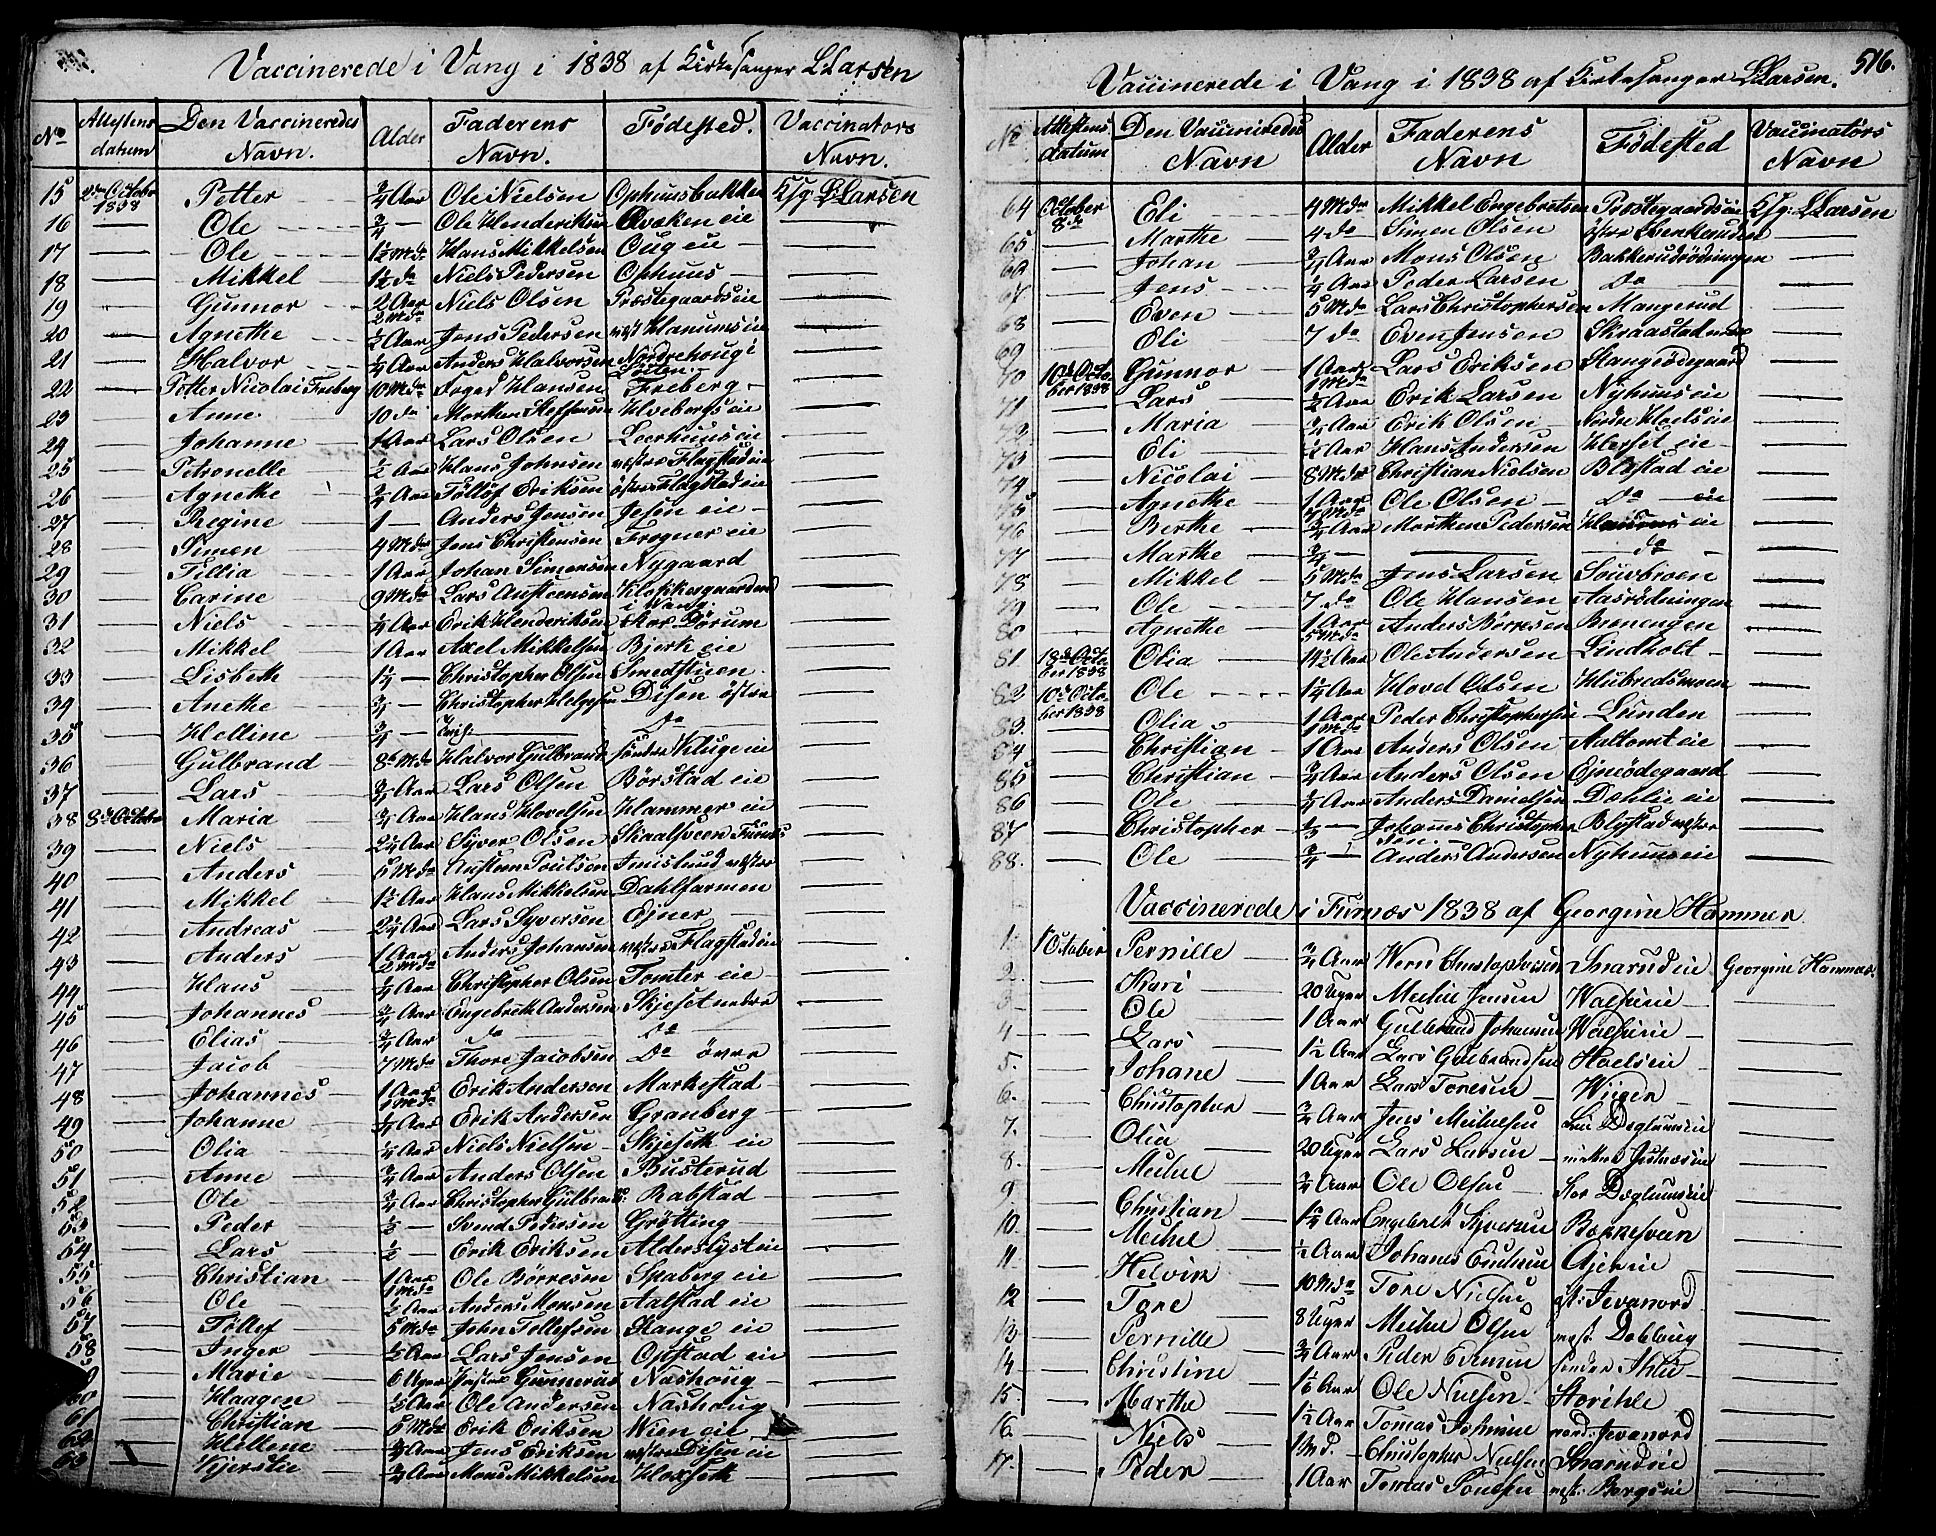 Vaccinerede i Vang i 1838 af Kirkesanger L. Larsen
No Attestens datum Den Vaccineredes Navn. Alder Faderens Navn. Fødested. Vaccinators Navn.
15 2den October 1838 Petter ¾ Aar Ole Nielsen Ophuusbakken K/sg L. Larsen
16 — Ole ¾ Ole Henderiksen eie —
17 — Ole 1½ Mdr Hans Mikkelsen eie —
18 — Mikkel 1½ do Niels Pedersen Ophuus —
19 — Gunnor 2 Aar 2 Mdr Niels Olsen Præstegaardseie —
20 — Agnethe ½ Aar Jens Pedersen vest Hanumseie —
21 — Halvor ¼ Aar Anders Halvorsen Nordrehoug i —
22 — Petter Nicolai Freberg 10 Mdr Hansen Freberg —
23 — Anne 10 do Morthen Steffensen Hvebergseie —
24 — Johanne Aar Lars Olsen Leerhuuseie —
25 — Petronelle ½ Aar Hans Johnsen vestre Flagstadeie —
26 — Agnethe ¾ Aar Tølløf Eriksen østre Flagstadeie —
27 — Regine 1 — Anders Jensen Jesen eie —
28 — Simen 4 Mdr Jens Christensen Frogner eie —
29 — Tillia 1 Aar Johan Simensen Nygaard —
30 — Carine 9 Mdr Lars Austensen Klokkergaarden i Vang —
31 — Niels ¼ Aar Erik Henderiksen Stor Dørum —
32 — Mikkel 1 Aar Axel Mikkelsen Bjerk eie —
33 — Lisbeth 1½ — Christopher Olsen Smedstuen —
34 — Anethe ¾ — Christopher Helgesen Disen østre —
35 — Helline ¾ do —
36 — Gulbrand 8 Mdr Halvor Gulbrands søndre Kluge eie —
37 — Lars ¾ Aar Lars Olsen Børstad eie —
38 8de Octobr Maria ¾ Aar Hans Hovelsen Hammer eie —
39 — Niels 2¼ Aar Syver Olsen Skaalsveen Furnæs —
40 — Anders 5 Mdr Austen Poulsen Imislund vestre —
41 — Mikkel 1½ Aar Hans Mikkelsen Dahlsarmen —
42 — Andreas 2¼ Aar Lars Syversen Ejner —
43 — Anders 1 Aar 2 Mdr Anders Johansen vestre Flagstadeie —
44 — Hans ¼ Aar Christopher Olsen Tomter eie —
45 — Johannes ¾ Aar Engebreth Andersen Skjeset nedre —
46 — Elias ¾ Aar do do —
47 — Jacob 7 Mdr Thore Jacobsen Do øvre —
48 — Johannes 1 Aar 1 Mdr Erik Andersen Markestad —
49 — Johanne ¼ Aar Erik Andersen Granberg —
50 — Olia ¼ Aar Niels Nielsen Skjeseth eie —
51 — Anne ¾ Aar Anders Olsen Busterud —
52 — Ole ¾ Aar Christopher Gulbrands: Rabstad —
53 — Peder ½ — Svend Pedersen Grøtting —
54 — Lars ½ — Erik Eriksen Alderslyst eie —
55 — Christian 1 Aar 1 Mdr Ole Børresen Spaberg eie —
56 — Ole ½ Aar Anders Monsen Aalstad eie —
57 — Tøllef 5 Mdr John Tollefsen Stange eie —
58 — Inger ½ Aar Lars Jensen Opstad eie —
59 — Marie 6 Uger Gunnerud Nashoug —
60 — Haagen ½ Aar Ole Andersen Nashoug —
61 — Christian 5 Mdr Erik Eriksen Wien eie —
62 — Hellene ¾ Aar Jens Eriksen vestre Disen eie
63 — Kjerstie ¾ Aar Mons Mikkelsen Horseth —
516.
Vaccinerede i Vang i 1838 af Kirkesanger L. Larsen.
No Attestens datum Den Vaccineredes Navn Alder Faderens Navn Fødested Vaccinatørs Navn
64 October 8de Eli 4 Mdr Mikkel Engebretsen Præstegaardseie K/sg: L. Larsen
65 — Marthe 4 do Simen Olsen østre —
66 — Johan ¾ Aar Mons Olsen Bakkerudrødningen —
67 — Jens ¼ Aar Peder Larsen Do —
68 — Even 5 Mdr Lars Christophersen Mangerud —
69 — Eli 7 do Even Jensen Skraastad nedre —
70 10de October 1838 Gunnor 1 Aar 1 Mdr Lars Eriksen Stangeødegaard —
71 — Lars ½ Aar Erik Larsen Nyhuus eie —
72 — Maria ¾ Aar Erik Olsen Nordre Hoelseie —
73 — Eli ½ Aar Hans Andersen Horset eie —
74 — Nicolai 8 Mdr Christian Nielsen Blystad eie —
75 — Agnethe 1 Aar 7 Mdr Ole Olsen Do eie —
76 — Berthe ¾ Aar Morthen Pedersen eie —
77 — Marthe ¾ — — do —
78 — Mikkel 5 Mdr Jens Larsen —
79 — Ole 7 do Ole Hansen Aasrødningen —
80 — Agnethe 1 Aar 5 Mdr Anders Børresen Brenengen —
81 18de October 1838 Olia 14½ Aar Ole Andersen Lindholt —
82 10de October 1838 Ole 1¼ Aar Hovel Olsen Hubredsmoen —
83. Olia 1 Aar 1 Mdr Peder Christophersen Lunden —
84 — Christian 1 Aar Anders Olsen Aaltomt eie —
85 — Christian ¾ Aar Anders Olsen Ejneødegaard —
86 — Ole ¾ Aar Anders Danielsen Dæhlie eie —
87 — Christopher — Johannes Christophersen Blystad vestre —
88. — Ole ¾ — Anders Andersen Nyhuuseie —
Vaccinerede i Furnæs 1838 af Georgine Hammer
1. 1 October Pernille ¾ Aar Christophersen Snarudeie Georgine Hammer.
2. — Kari 20 Uger Jensen —
3 — Ole 1 Aar Gulbrand Johansen —
4 — Lars 1½ Aar Lars Gulbrandsen Hoelseie —
5. — Johane 1 Aar Lars Toresen Wigen —
6. — Christopher ¾ Aar Jens Deglumseie —
7. — Olia 20 Uger Lars Larsen —
8. — ¾ Aar Ole Olsen Stor Deglumseie —
9 — Christian 1¼ Aar Engebret Syversen —
10. — ½ Aar Johanes —
11. — Helvik 10 Mdr Tore Nielsen Jevanord —
12 — Tore 8 Uger Olsen vest: Dobloug —
13 — Pernille ¾ Aar Peder Evensen —
14 — Christine 1⅙ Aar Ole Nielsen Storihle —
15. — Marthe 1½ Aar Tomas Johnsen nord: Jevanord —
16. — Niels 1 Md. Christopher Nielsen Snarudeie —
17. — Peder 1 Aar Tomas Poulsen vest: Bergseie —